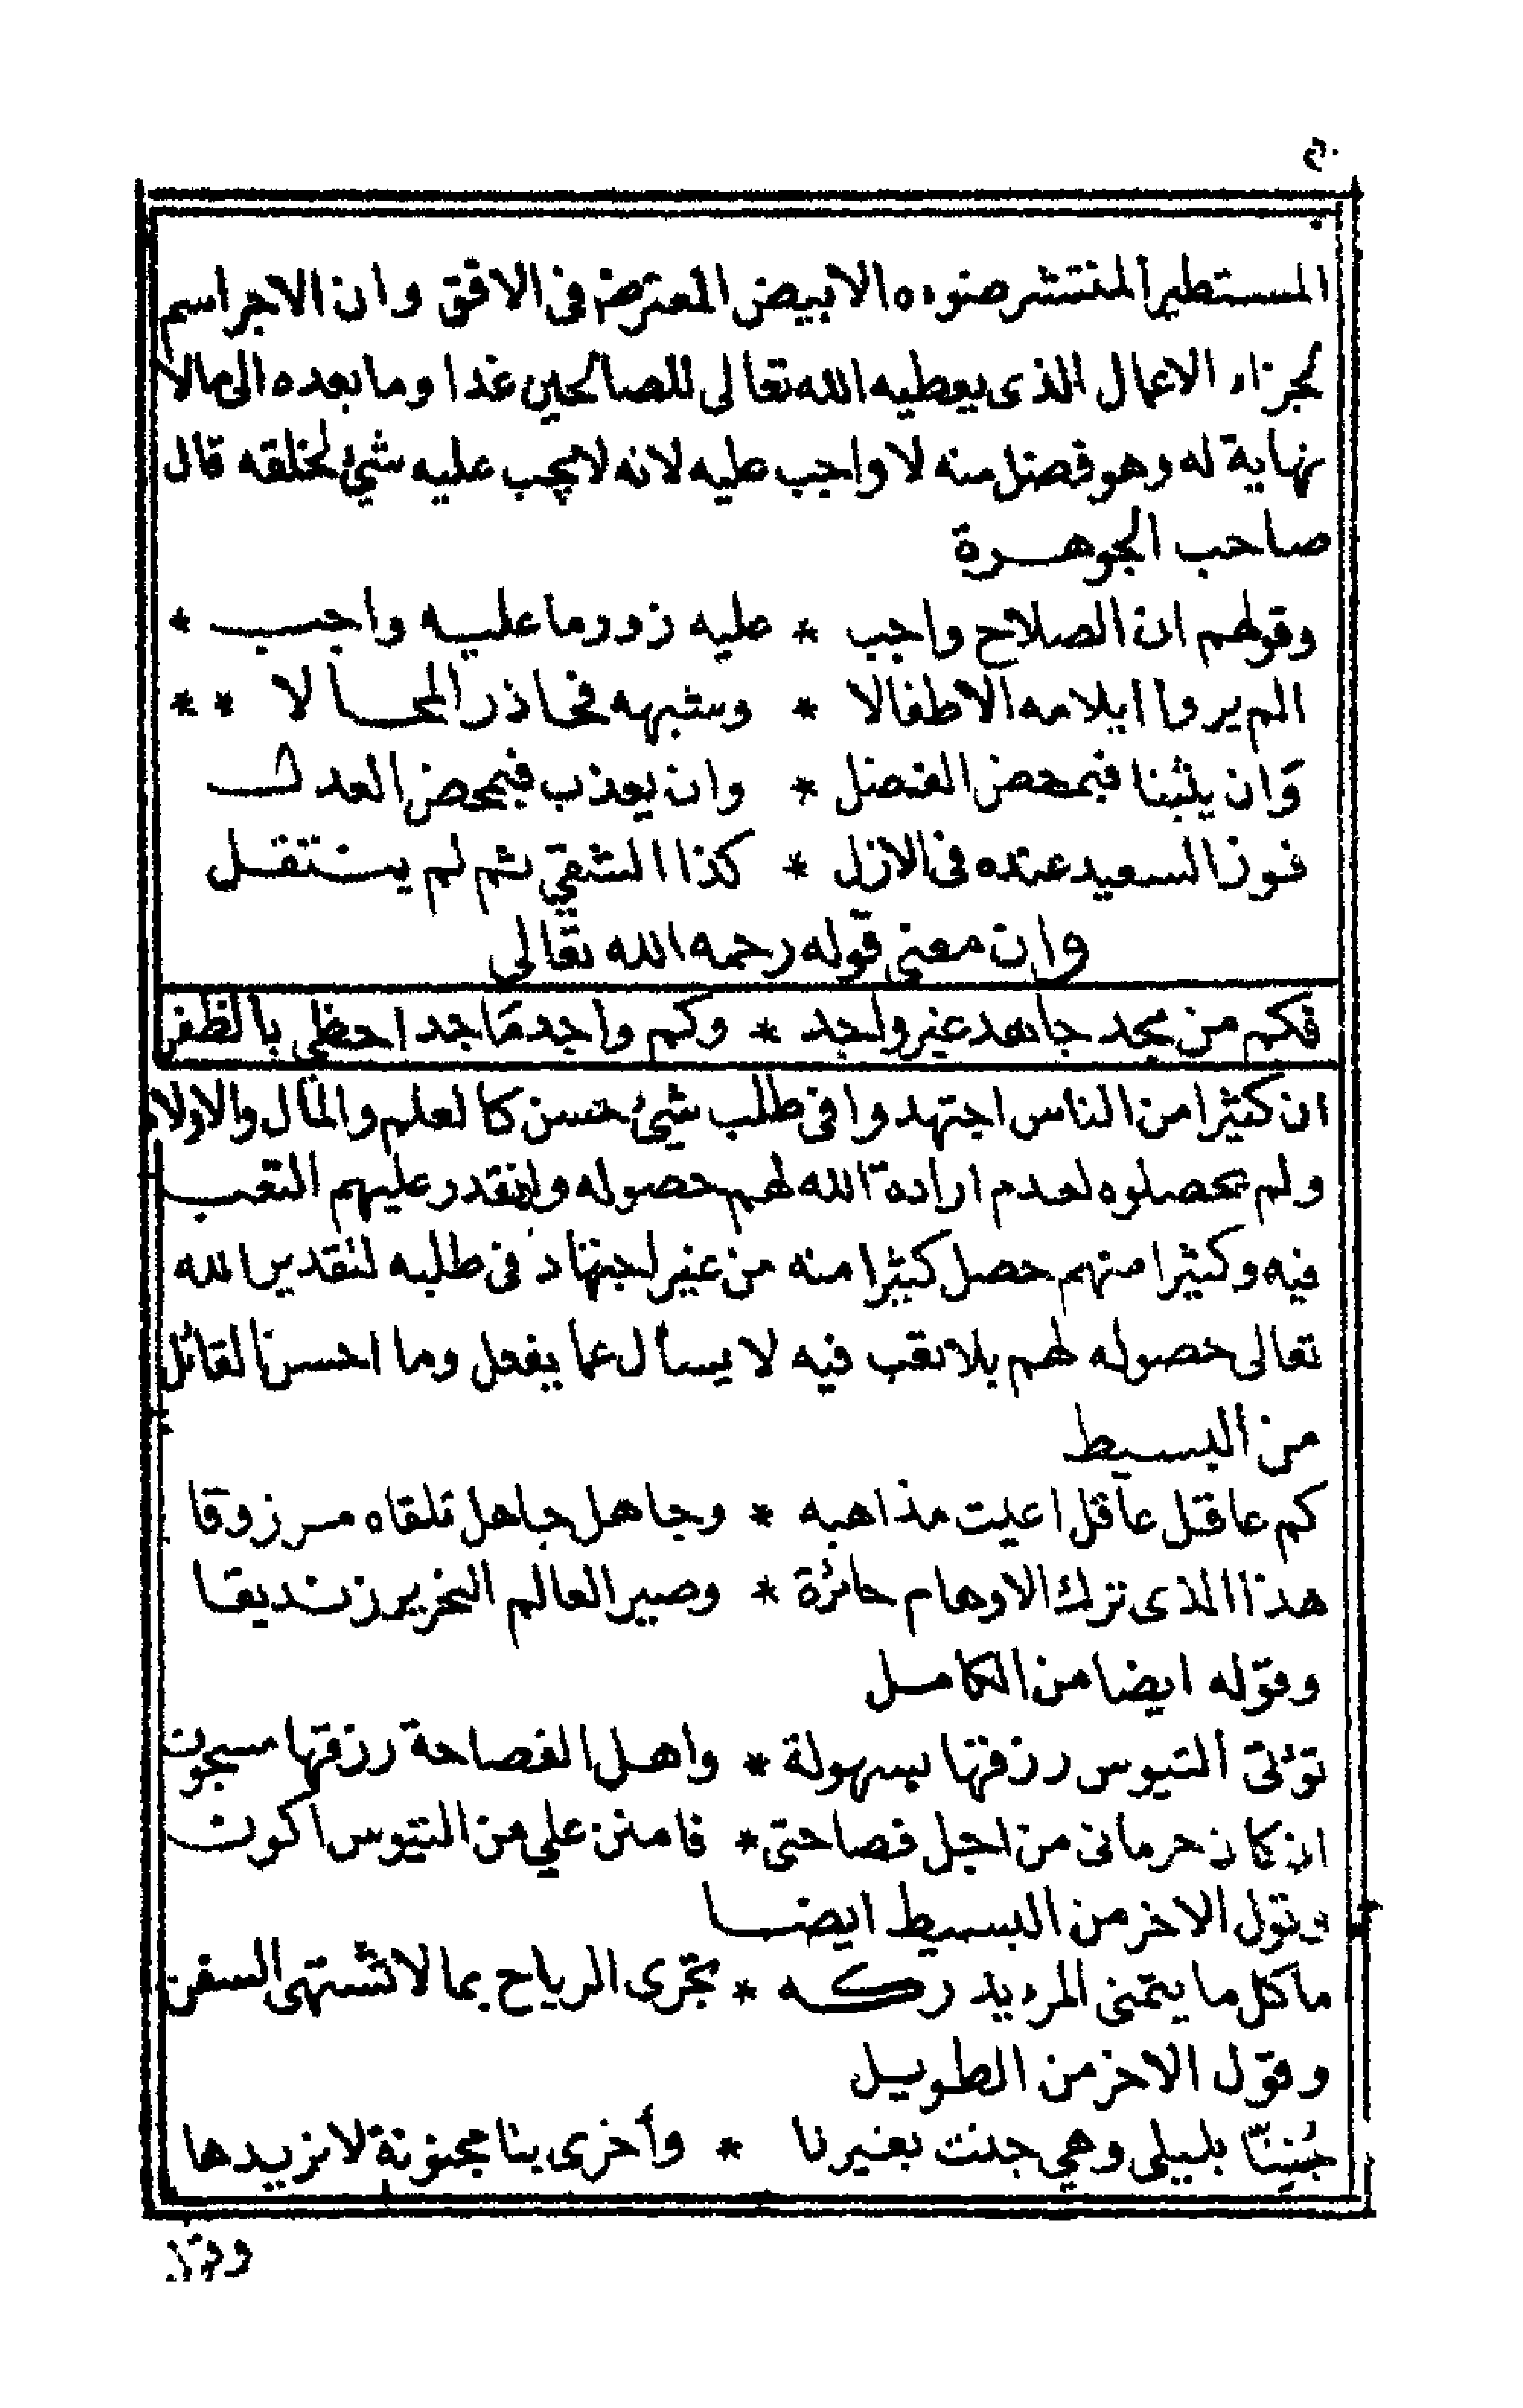 ٥٠
المستطير المنتشر ضوءه الابيض المعترض فى الافق وان الاجر اسم
لجزاء الاعمال الذى يعطيه الله تعالى للصالحين غدا وما بعده الى مالا
نهاية له وهو فضل منه لا واجب عليه لانه لا يجب عليه شئ لخلقه قال
صاحب الجوهرة
وقولهم ان الصلاح واجب * عليه زور ما عليه واجب *
الم يروا ايلامه الاطفالا * وشبهه فحاذر المحالا * *
وَان يثبنا فبمحض الفضل * وان يعذب فبمحض العدل
فوز السعيد عنده فى الازل * كذا الشقي ثم لم ينتقل
وان معنى قوله رحمه الله تعالى
فكم من مجد جاهد غير واجد * وكم واجد مَاجد احظى بالظفر
ان كثيرا من الناس اجتهدوا فى طلب شئ حسن كالعلم والمال والاولاد
ولم يحصلوه لعدم ارادة الله لهم حصوله وان قدر عليهم التعب
فيه وكثيرا منهم حصل كثيرا منه من غير اجتهاد فى طلبه لتقدير الله
تعالى حصوله لهم بلا تعب فيه لا يسأل عما يفعل وما احسن القائل
من البسيط
كم عاقل عاقل اعيت مذاهبه * وجاهل جاهل تلقاه مرزوقا
هذا الذى ترك الاوهام حائرة * وصير العالم النحرير زنديقا
وقوله ايضا من الكامل
تؤتى التيوس رزقها بسهولة * واهل الفصاحة رزقها مسجون
ان كان حرمانى من اجل فصاحتى * فامنن علي من التيوس اكون
وقول الاخر من البسيط ايضا
ما كل ما يتمنى المرء يدركه * تجرى الرياح بما لا تشتهى السفن
وقول الاخر من الطويل
جُنِنّا بليلى وهي جنت بغيرنا * وأخرى بنا مجنونة لا نريدها